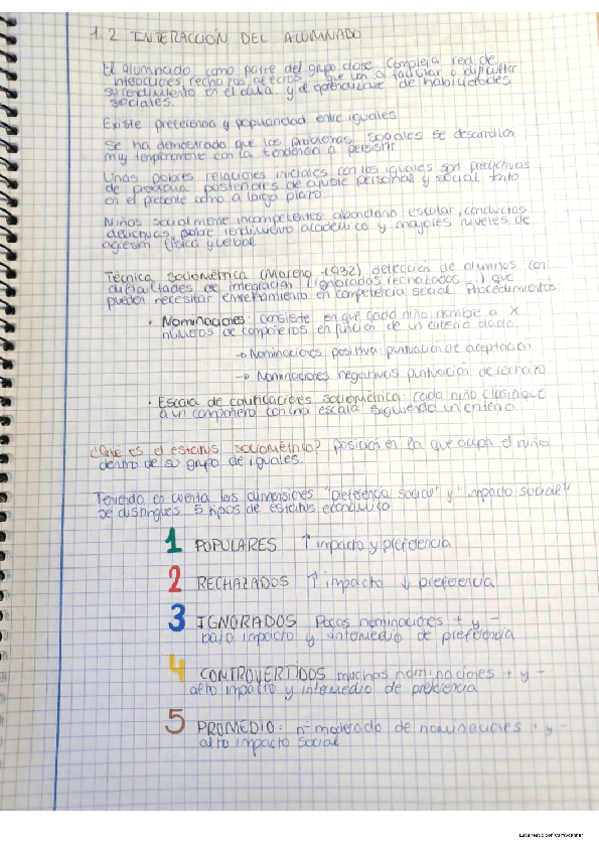 1.2 INTERACCIÓN DEL ALUMNADO
El alumnado, como parte del grupo clase. Compleja red de
interacciones, rechazos, afectos, que van a facilitar o dificultar
su rendimiento en el aula y el aprendizaje de habilidades
sociales.
Existe preferencia y popularidad entre iguales
Se ha demostrado que los problemas sociales se desarrollan
muy tempranamente con la tendencia a persistir
Unas pobres relaciones iniciales con los iguales son predictivas
de problemas posteriores de ajuste personal y social tanto
en el presente como a largo plazo.
Niños socialmente incompetentes: abandono escolar, conductas
delictivas, pobre rendimiento académico y mayores niveles de
agresión física y verbal
Técnica sociométrica (Moreno 1932) detección de alumnos con
dificultades de integración (ignorados, rechazados...) que
pueden necesitar entrenamiento en competencia social. Procedimientos
• Nominaciones: consiste en que cada niño nombre a X
números de compañeros en función de un criterio dado.
→ Nominaciones positiva: puntuación de aceptación
→ Nominaciones negativas puntuación de rechazo
• Escala de calificaciones sociométrica: cada niño clasifique
a un compañero con una escala siguiendo un criterio.
¿Qué es el estatus sociométrico? posición en la que ocupa el niño
dentro de su grupo de iguales.
Teniendo en cuenta las dimensiones "preferencia social" y "impacto social"
se distinguen 5 tipos de estatus
1 POPULARES ↑ impacto y preferencia
2 RECHAZADOS ↑ impacto ↓ preferencia
3 IGNORADOS Pocas nominaciones + y -
bajo impacto y intermedio de preferencia
4 CONTROVERTIDOS muchas nominaciones + y -
alto impacto y intermedio de preferencia
5 PROMEDIO: nº moderado de nominaciones + y -
alto impacto social